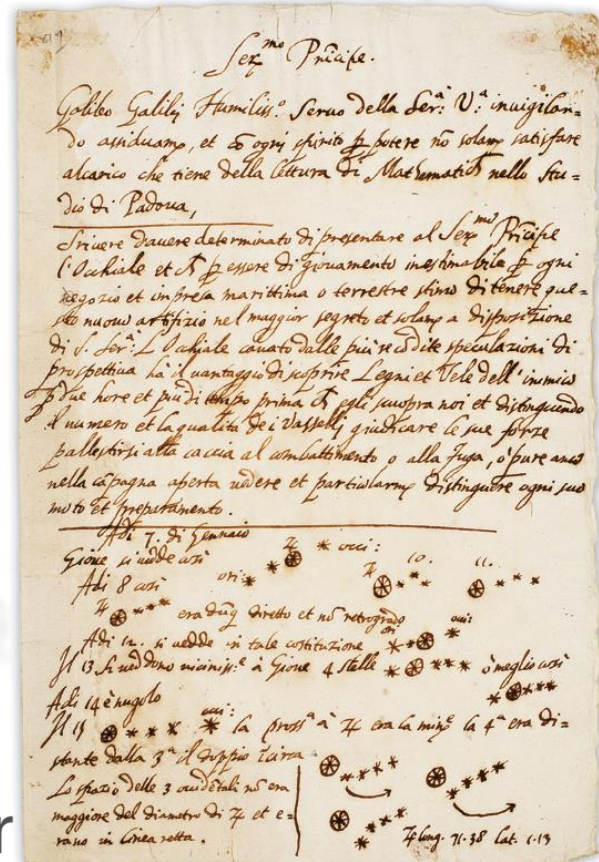 Ser.mo Pricipe.
Galileo Galilej Humiliss.o Servo della Ser.a V.a invigilan=
do assiduam.e, et cō ogni spirito p potere nō solam.e satisfare
alcarico che tiene della lettura di Mathematich nello Stu=
dio di Padova,
Scrivere davere determinato di presentare al Ser.mo Pricipe
l'Occhiale et ch p essere di giovamento inestimabile p ogni
negozio et impresa marittima o terrestre stimo di tenere que=
sto nuovo artifizio nel maggior segreto et solam.e a disposizione
di S. Ser.a L'Occhiale cavato dalle più recōdite speculazioni di
prospettiva ha il vantaggio di scoprire Legni et Vele dell'inimico
p due hore et piu di tempo prima ch egli scuopra noi et distinguendo
il numero et la qualita dei Vasselli giudicare le sue forze
pallestirsi alla caccia al combattimento o alla fuga, o pure anco
nella cāpagna aperta vedere et particularm.e distinguere ogni suo
moto et preparamento.
Adi 7. di Gennaio
Gione si vedde cosi ♃ occi:
Adi 8 cosi ori: ♃ 10. 11.
♃ era dūq diretto et nō retrogrado
Adi 12. si vedde in tale costituzione ori occi:
Il 13 si veddono vicinis.e à Giove 4 stelle ò meglio cosi
Adi 14 è nugolo
Il 15 occi: la pross.a à ♃ era la min.e la 4.a era di=
stante dalla 3.a il doppio ī circa
Lo spazio delle 3 occidētali nō era
maggiore del diametro di ♃ et e=
rano in linea retta.
♃ long. 71.38 lat. 1.13
r